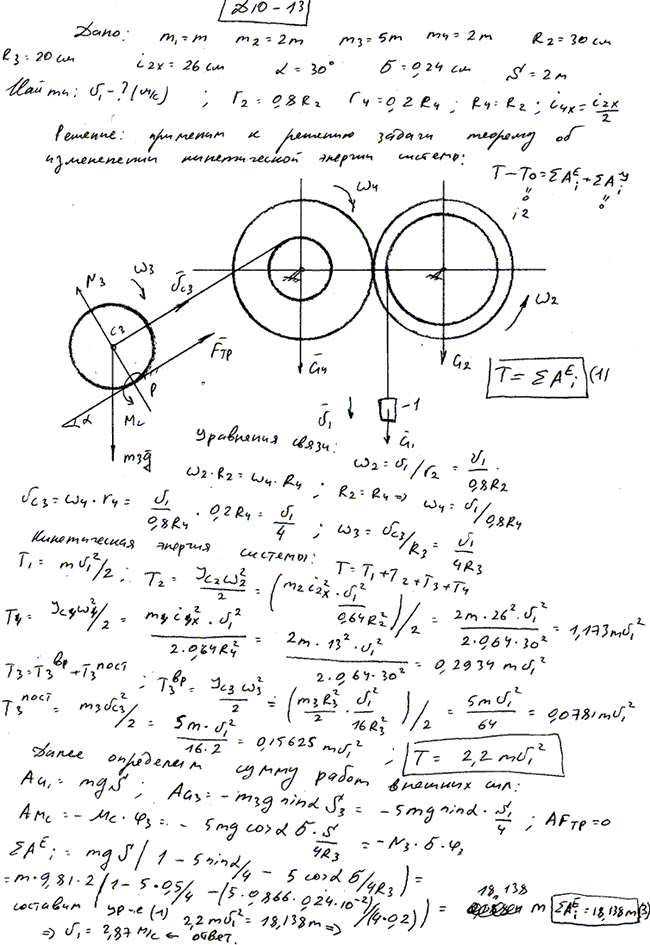 Д10-13
Дано: m₁ = m m₂ = 2m m₃ = 5m m₄ = 2m R₂ = 30 см
R₃ = 20 см i₂ₓ = 26 см α = 30° δ = 0,24 см S = 2 м
Найти: υ₁ - ? (м/с) ; r₂ = 0,8R₂ r₄ = 0,2R₄ ; R₄ = R₂ ; i₄ₓ = i₂ₓ/2
Решение: применим к решению задачи теорему об
изменении кинетической энергии системы:
T - T₀ = ΣAᵢᴱ + ΣAᵢᴶ
0 0
ω₄
N₃ ω₃ ῡc₃
C₃
F̄тр
ω₂
Ḡ₄ G₂
P
T = ΣAᵢᴱ (1)
α Mc
m₃ḡ
ῡ₁ -1
Ḡ₁
Уравнения связи:
ω₂ = υ₁/r₂ = υ₁/0,8R₂
ω₂·R₂ = ω₄·R₄ ; R₂ = R₄ => ω₄ = υ₁/0,8R₄
υc₃ = ω₄·r₄ = υ₁/0,8R₄ · 0,2R₄ = υ₁/4 ; ω₃ = υc₃/R₃ = υ₁/4R₃
Кинетическая энергия системы: T = T₁ + T₂ + T₃ + T₄
T₁ = mυ₁²/2 ; T₂ = Jc₂ω₂²/2 = (m₂i₂ₓ²·υ₁²/0,64R₂²)/2 = 2m·26²·υ₁²/2·0,64·30² = 1,173mυ₁²
T₄ = Jc₄ω₄²/2 = m₄i₄ₓ²·υ₁²/2·0,64R₄² = 2m·13²·υ₁²/2·0,64·30² = 0,2934 mυ₁²
T₃ = T₃ᵛᵖ + T₃ᵖᵒˢᵗ ; T₃ᵛᵖ = Jc₃ω₃²/2 = (m₃R₃²/2 · υ₁²/16R₃²)/2 = 5mυ₁²/64 = 0,0781mυ₁²
T₃ᵖᵒˢᵗ = m₃υc₃²/2 = 5m·υ₁²/16·2 = 0,15625 mυ₁² ; T = 2,2 mυ₁²
Далее определим сумму работ внешних сил:
AG₁ = mgS ; AG₃ = -m₃g sinα S₃ = -5mg sinα · S₁/4 ; AFтр = 0
AMc = -Mc·φ₃ = -5mg cosα δ · S/4R₃ = -N₃·δ·φ₃
ΣAᵢᴱ = mgS(1 - 5sinα/4 - 5cosα δ/4R₃) =
= m·9,81·2(1 - 5·0,5/4 - (5·0,866·0,24·10⁻²)/(4·0,2)) = 18,138 m ΣAᵢᴱ = 18,138m (3)
составим ур-е (1) 2,2mυ₁² = 18,138m =>
=> υ₁ = 2,87 м/с ← ответ.